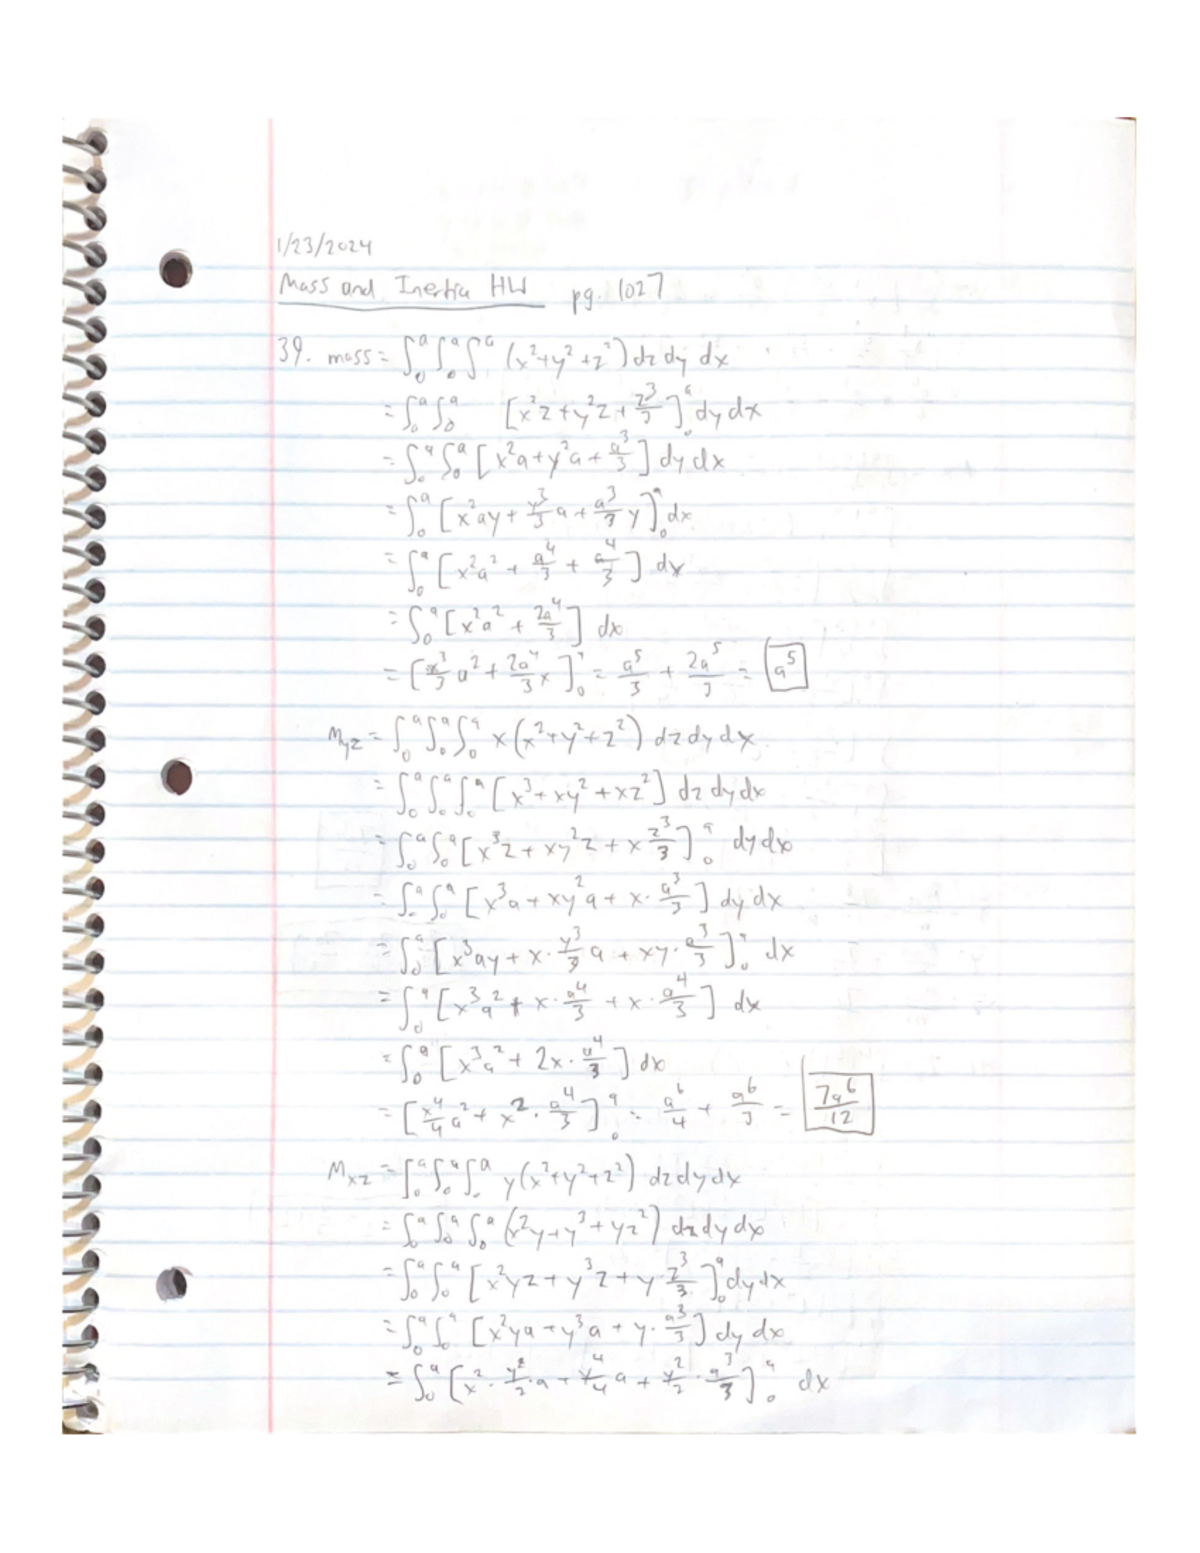 1/23/2024
Mass and Inertia HW pg. 1027
39. mass = ∫₀ᵃ∫₀ᵃ∫₀ᵃ (x²+y²+z²) dz dy dx
= ∫₀ᵃ∫₀ᵃ [x²z+y²z+z³/3]₀ᵃ dy dx
= ∫₀ᵃ∫₀ᵃ [x²a+y²a+a³/3] dy dx
= ∫₀ᵃ [x²ay+y³/3 a+a³/3 y]₀ᵃ dx
= ∫₀ᵃ [x²a²+a⁴/3+a⁴/3] dx
= ∫₀ᵃ [x²a²+2a⁴/3] dx
= [x³/3 a²+2a⁴/3 x]₀ᵃ = a⁵/3 + 2a⁵/3 = a⁵
Myz = ∫₀ᵃ∫₀ᵃ∫₀ᵃ x(x²+y²+z²) dz dy dx
= ∫₀ᵃ∫₀ᵃ∫₀ᵃ [x³+xy²+xz²] dz dy dx
= ∫₀ᵃ∫₀ᵃ [x³z+xy²z+x z³/3]₀ᵃ dy dx
= ∫₀ᵃ∫₀ᵃ [x³a+xy²a+x·a³/3] dy dx
= ∫₀ᵃ [x³ay+x·y³/3 a+xy·a³/3]₀ᵃ dx
= ∫₀ᵃ [x³a²+x·a⁴/3+x·a⁴/3] dx
= ∫₀ᵃ [x³a²+2x·a⁴/3] dx
= [x⁴/4 a²+x²·a⁴/3]₀ᵃ = a⁶/4 + a⁶/3 = 7a⁶/12
Mxz = ∫₀ᵃ∫₀ᵃ∫₀ᵃ y(x²+y²+z²) dz dy dx
= ∫₀ᵃ∫₀ᵃ∫₀ᵃ (x²y+y³+yz²) dz dy dx
= ∫₀ᵃ∫₀ᵃ [x²yz+y³z+y·z³/3]₀ᵃ dy dx
= ∫₀ᵃ∫₀ᵃ [x²ya+y³a+y·a³/3] dy dx
= ∫₀ᵃ [x²·y²/2·a+y⁴/4 a+y²/2·a³/3]₀ᵃ dx